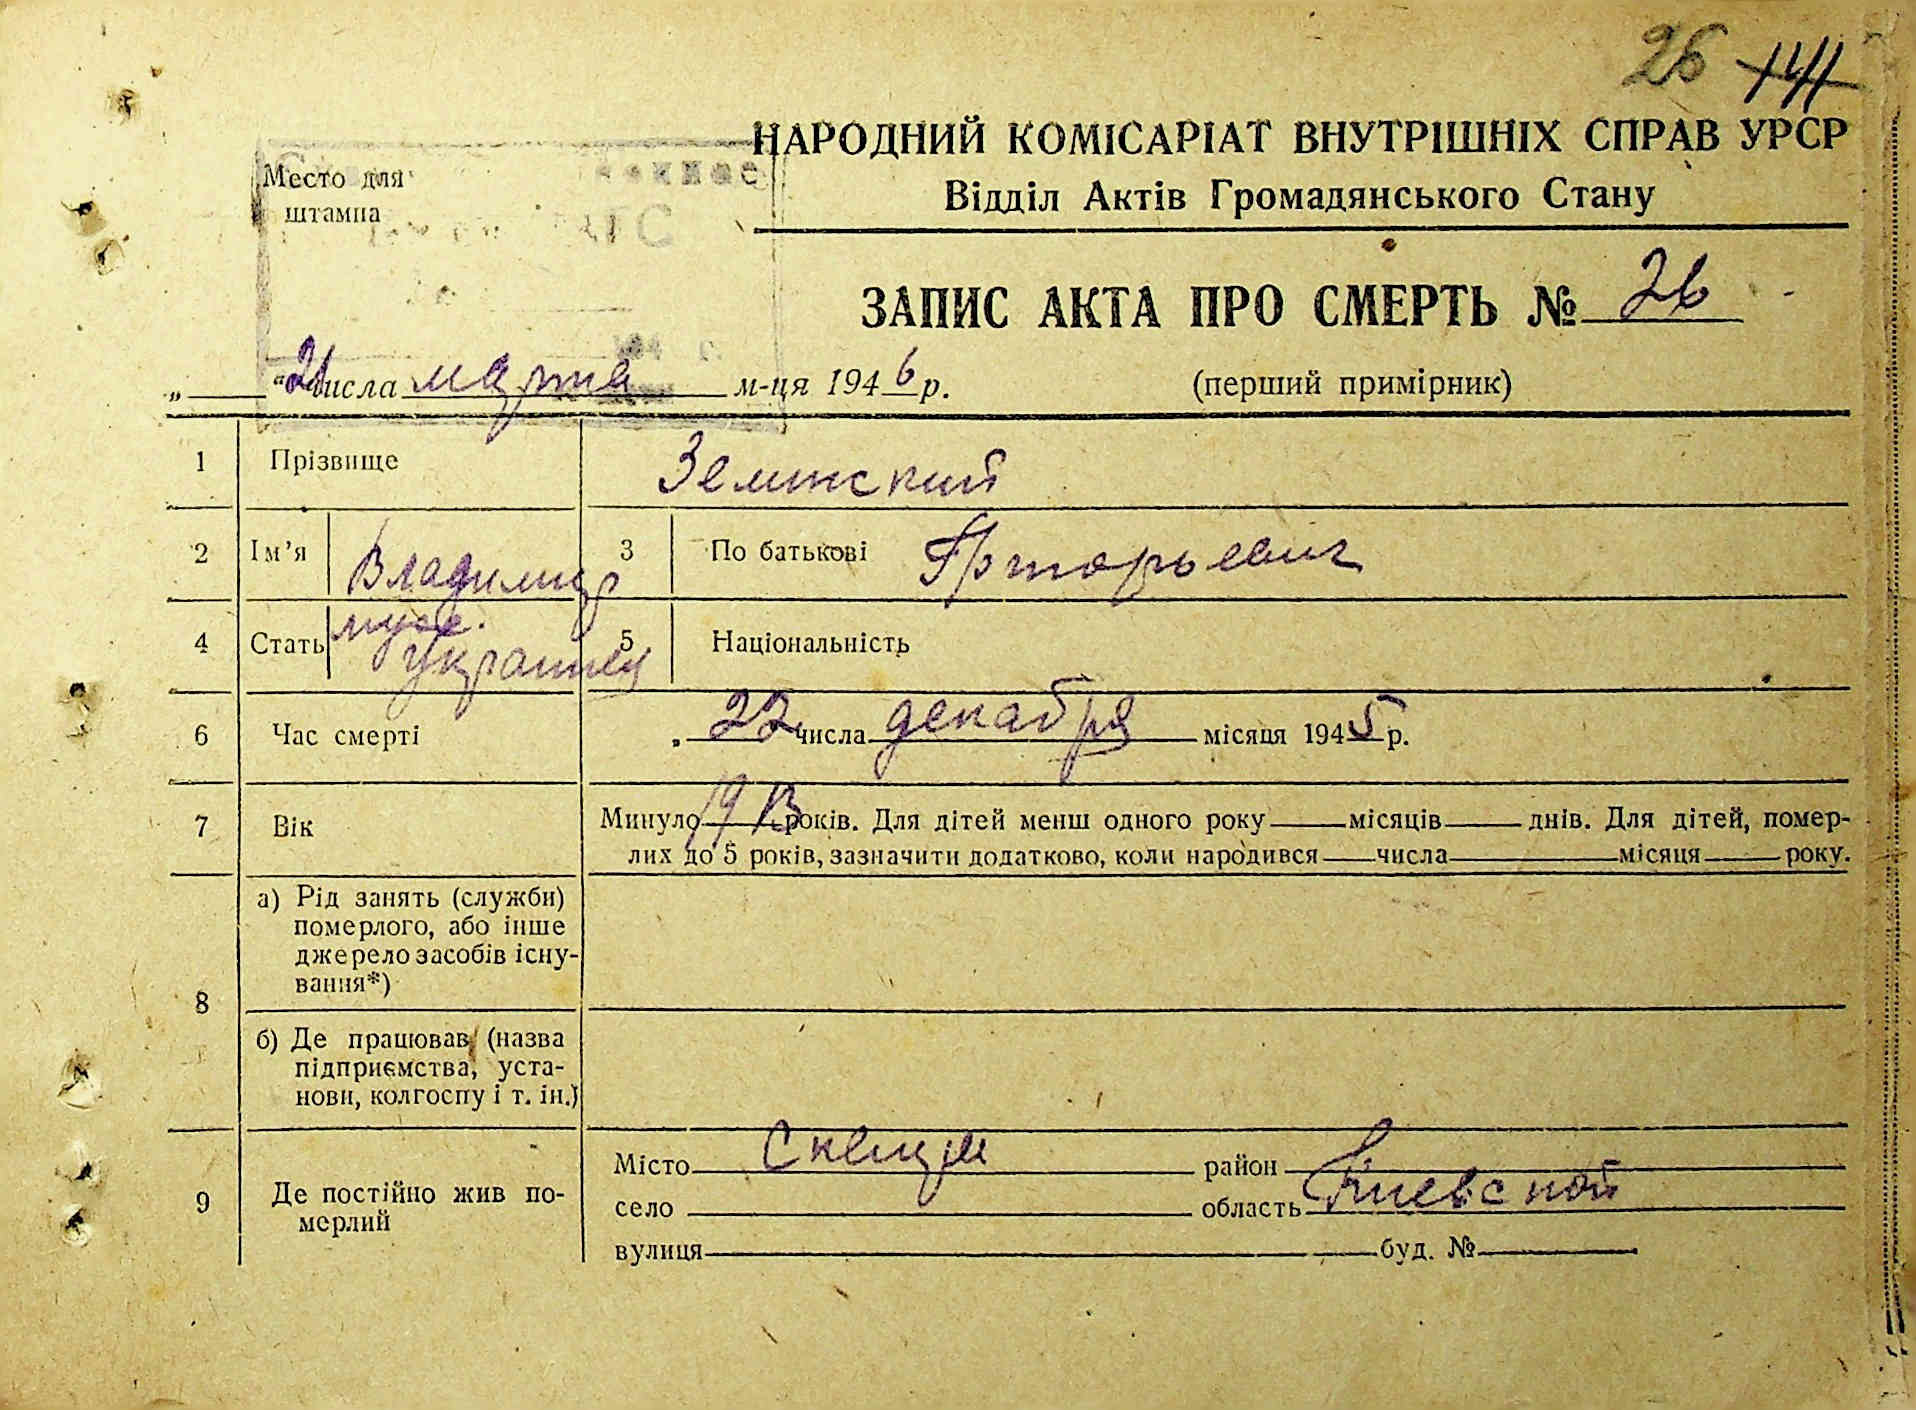 26
НАРОДНИЙ КОМІСАРІАТ ВНУТРІШНІХ СПРАВ УРСР
Место для
штампа
ЗАГС
Відділ Актів Громадянського Стану
ЗАПИС АКТА ПРО СМЕРТЬ № 26
„ “ 21 числа марта м-ця 1946 р.
(перший примірник)
1 Прізвище Землиский
2 Ім’я Владимир 3 По батькові
4 Стать муж. 5 Національність
Украинец
6 Час смерті „ 22 числа декабря місяця 1945 р.
7 Вік Минуло 19 років. Для дітей менш одного року місяців днів. Для дітей, помер-
лих до 5 років, зазначити додатково, коли народився числа місяця року.
8
а) Рід занять (служби)
померлого, або інше
джерело засобів існу-
вання*)
б) Де працював (назва
підприємства, уста-
нови, колгоспу і т. ін.)
9 Де постійно жив по-
мерлий
Місто район
село область Киевской
вулиця буд. №